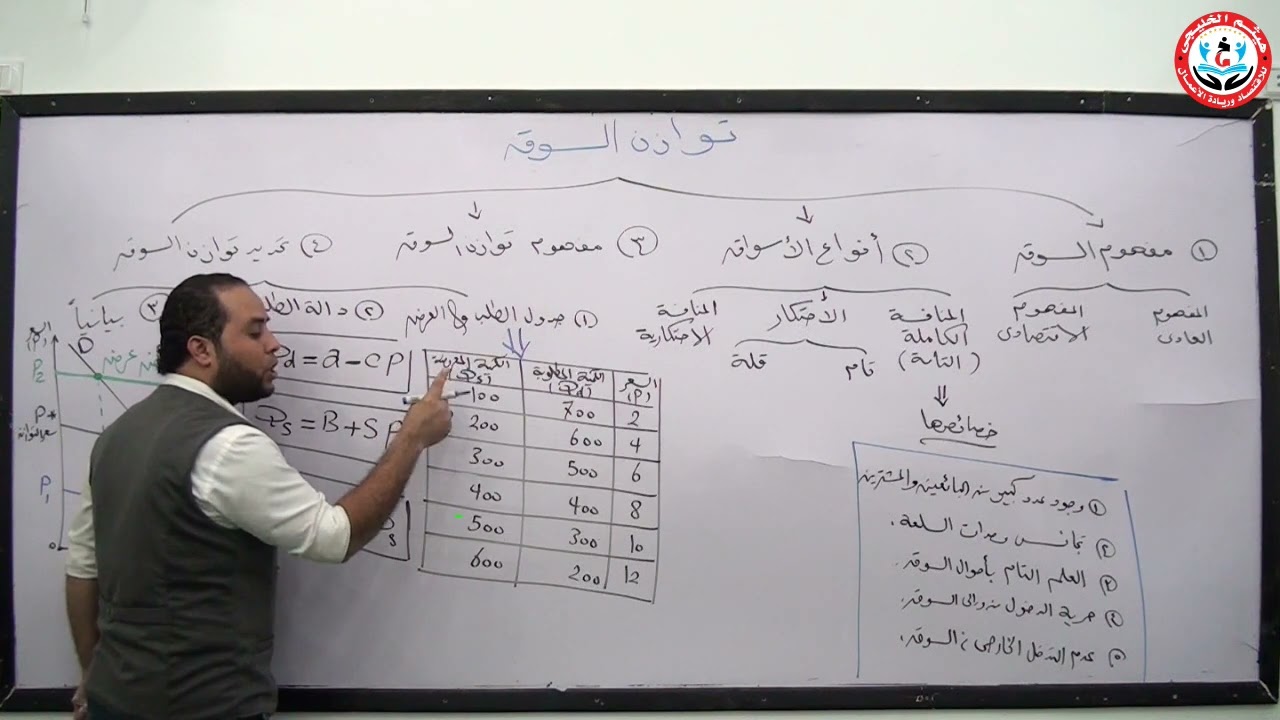 هيثم الخليجى
للاقتصاد وريادة الأعمال
توازن السوق
① مفهوم السوق
② أنواع الأسواق
③ مفهوم توازن السوق
④ تحديد توازن السوق
المفهوم العادى
المفهوم الاقتصادى
المنافسة الكاملة (التامة)
الأحتكار
تام
قلة
المنافسة الاحتكارية
خصائصها
① وجود عدد كبير من البائعين والمشترين
② تجانس وحدات السلعة.
③ العلم التام بأحوال السوق.
④ حرية الدخول من والى السوق.
⑤ عدم التدخل الخارجى فى السوق.
① جدول الطلب والعرض
② دالة الطلب
③ بيانياً
السعر (P) الكمية المطلوبة (Qd) الكمية المعروضة (Qs)
2 700 100
4 600 200
6 500 300
8 400 400
10 300 500
12 200 600
d = a - cP
Qs = B + SP
s
السعر (P)
D
P2
عرض
P*
سعر التوازن
P1
0